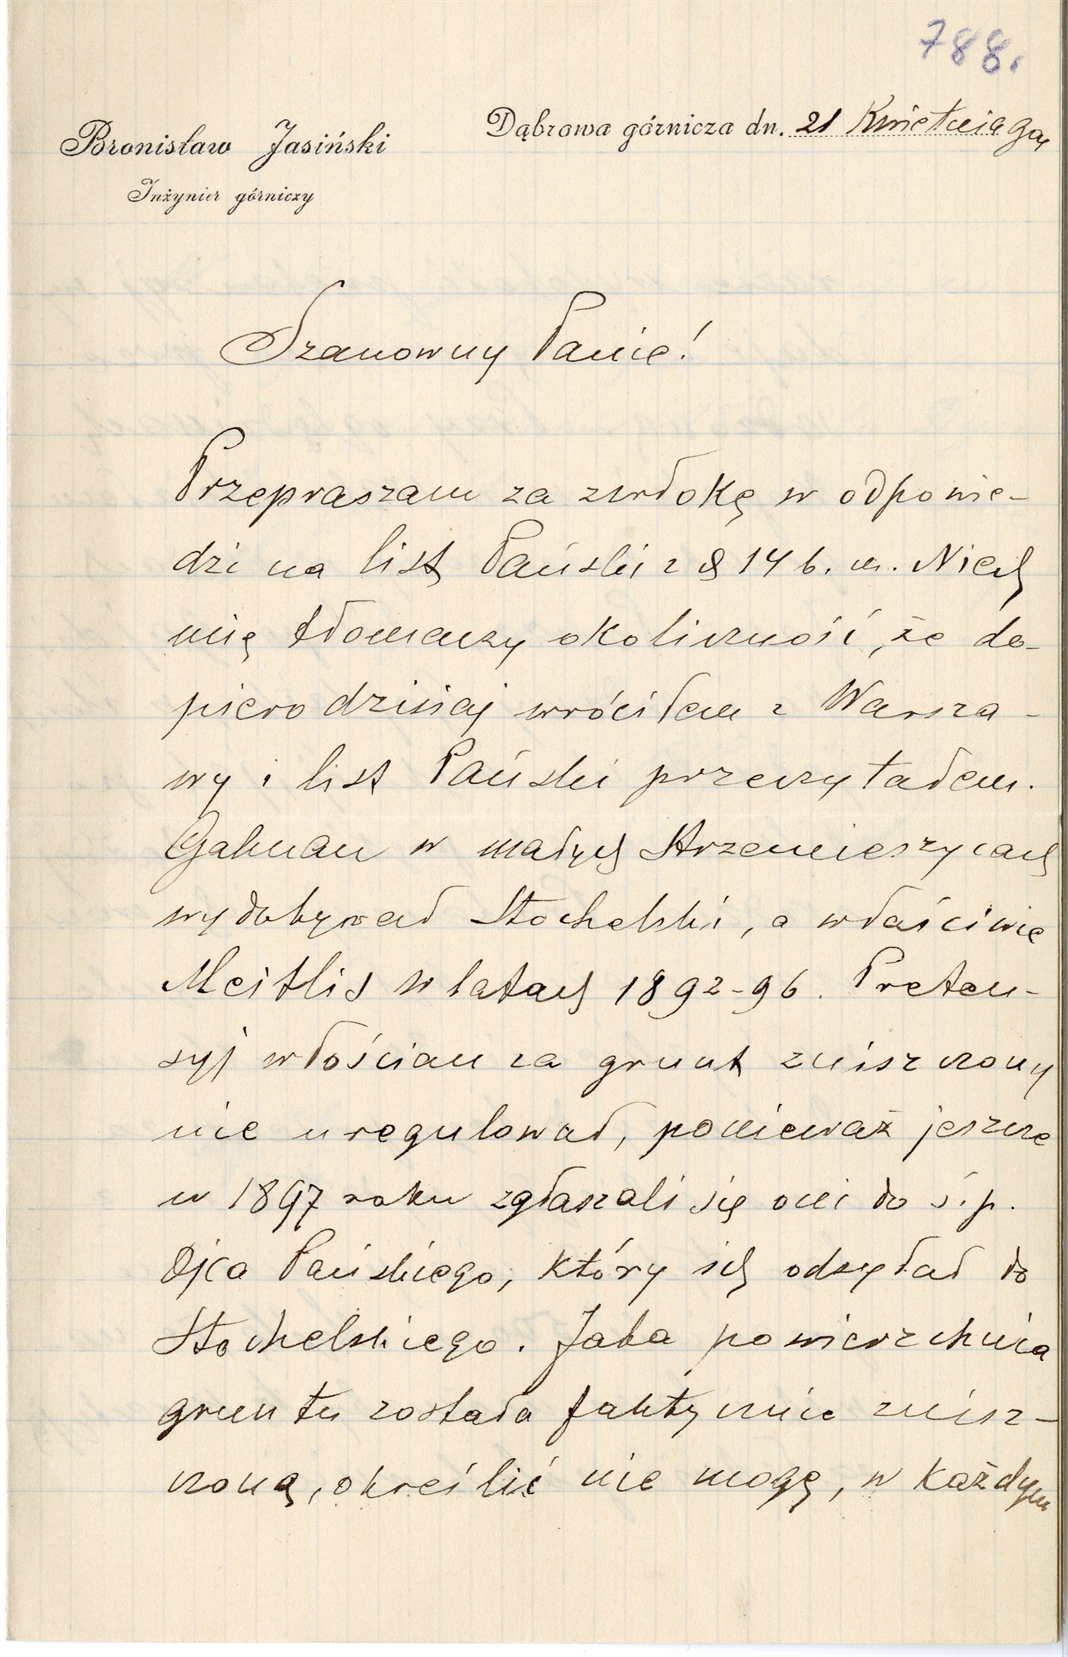 788.
Bronisław Jasiński
Inżynier górniczy
Dąbrowa górnicza dn. 21 Kwietnia
Szanowny Panie!
Przepraszam za zwłokę w odpowie-
dzi na list Pański z d 14 b. m. Niech
mię tłomaczy okoliczność, że do-
piero dzisiaj wróciłem z Warsza-
wy i list Pański przeczytałem.
Galman w małych Strzemieszycach
wydobywał Stochelski, a właściwie
Meitlis w latach 1892-96. Preten-
syj włościan za grunt zniszczony
nie uregulował, ponieważ jeszcze
w 1897 roku zgłaszali się oni do ś.p.
Ojca Pańskiego, który ich odsyłał do
Stochelskiego. Jaka powierzchnia
gruntu została faktycznie znisz-
czoną, określić nie mogę, w każdym